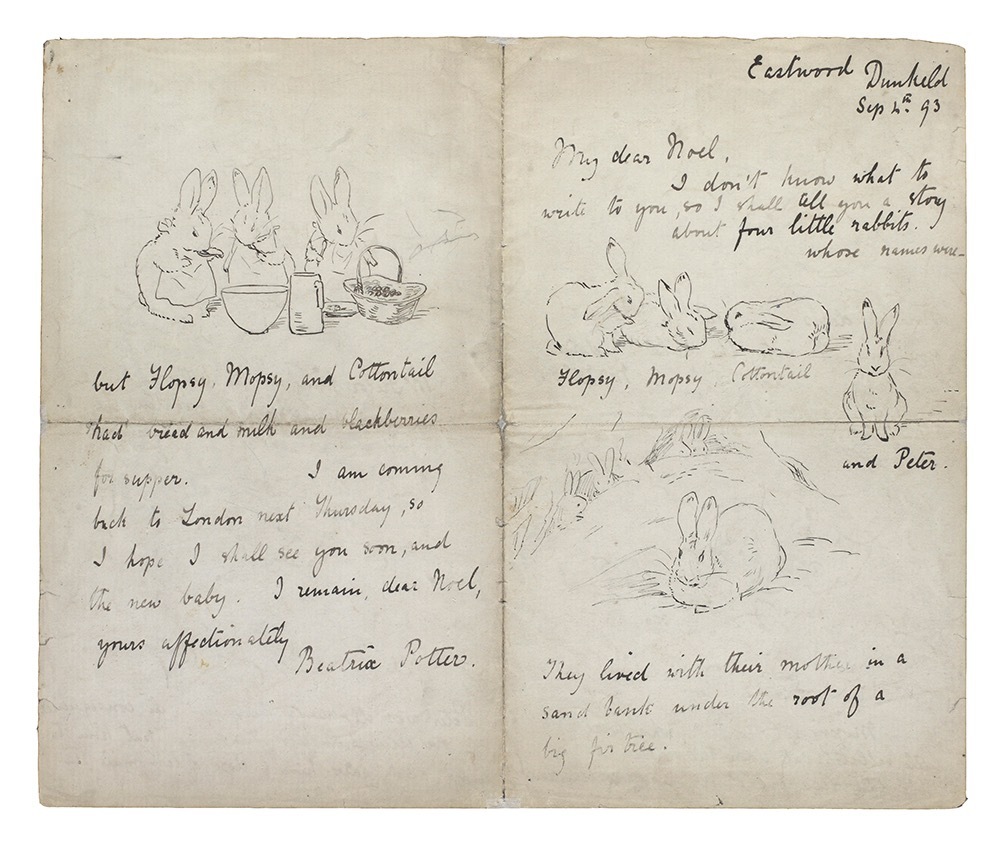 Eastwood Dunkeld
Sep 4th 93
My dear Noel,
I don't know what to
write to you, so I shall tell you a story
about four little rabbits.
whose names were—
Flopsy, Mopsy, Cottontail
and Peter.
They lived with their mother in a
sand bank under the root of a
big fir tree.
but Flopsy, Mopsy, and Cottontail
had bread and milk and blackberries
for supper. I am coming
back to London next Thursday, so
I hope I shall see you soon, and
the new baby. I remain, dear Noel,
yours affectionately
Beatrix Potter.